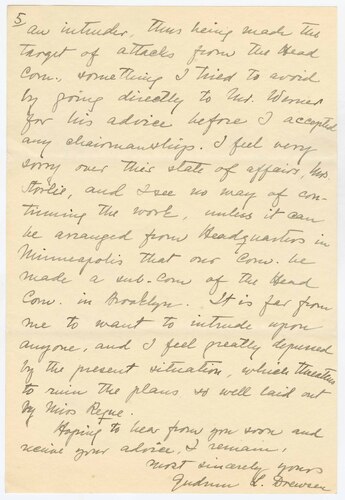 5
an intruder, thus being made the
target of attacks from the Head
Com. something I tried to avoid
by going directly to Mr. Werner
for his advice before I accepted
any chairmanships. I feel very
sorry over this state of affairs, Mrs
Storlie, and I see no way of con-
tinuing the work, unless it can
be arranged from Headquarters in
Minneapolis that our Com. be
made a sub-Com of the Head
Com. in Brooklyn. It is far from
me to want to intrude upon
anyone, and I feel greatly depressed
by the present situation, which threatens
to ruin the plans so well laid out
by Miss Regue.
Hoping to hear from you soon and
receive your advice, I remain,
most sincerely yours
Gudrun L. Drewsen